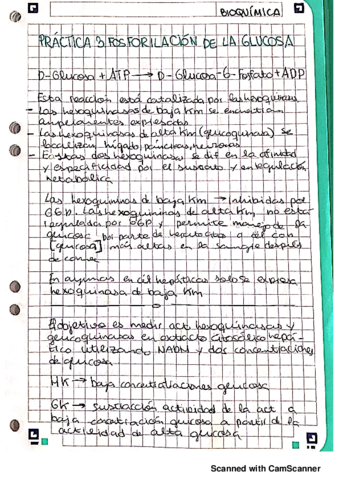 BIOQUÍMICA
PRÁCTICA 3 FOSFORILACIÓN DE LA GLUCOSA
D-Glucosa + ATP → D-Glucosa-6-Fosfato + ADP
Esta reacción está catalizada por las hexoquinasas
- Las hexoquinasas de baja Km se encuentran
ampliamente expresadas
- Las hexoquinasas de alta Km (glucoquinasa) se
localizan hígado, páncreas, neuronas
- Estas dos hexoquinasas se dif en la afinidad
y especificidad por el sustrato y en regulación
metabólica
Las hexoquinasas de baja Km → Inhibidas por
G6P. Las hexoquinasas de alta Km no está
regulada por G6P y permite manejo de la
glucosa por parte de hepatocitos a el con
[glucosa] más altas en la sangre después
de comer
En ayunas en cél hepáticas solo se expresa
hexoquinasa de baja Km
El objetivo es medir act hexoquinasas y
glucoquinasas en extracto citosólico hepá-
tico utilizando NADH y dos concentraciones
de glucosa
HK → baja concentraciones glucosa
GK → sustracción actividad de la act a
baja concentración glucosa a partir de la
actividad de alta glucosa
Scanned with CamScanner